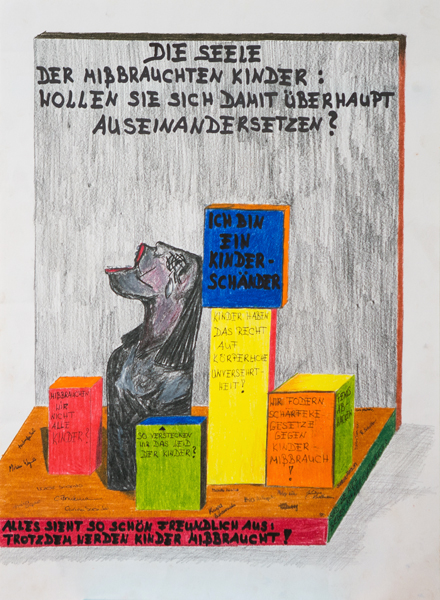 DIE SEELE
DER MIßBRAUCHTEN KINDER:
WOLLEN SIE SICH DAMIT ÜBERHAUPT
AUSEINANDERSETZEN?
ICH BIN
EIN
KINDER-
SCHÄNDER
KINDER HABEN
DAS RECHT
AUF
KÖRPERLICHE
UNVERSEHRT-
HEIT!
MIßBRAUCHEN
WIR
NICHT
ALLE
KINDER?
SO VERSTECKEN
WIR DAS LEID
DER KINDER?
WIR FODERN
SCHÄRFERE
GESETZE
GEGEN
KINDER-
MIßBRAUCH
!
ALLES SIEHT SO SCHÖN FREUNDLICH AUS:
TROTZDEM WERDEN KINDER MIßBRAUCHT!